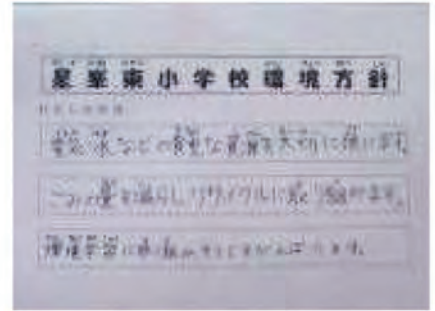 星峯東小学校環境方針
電気、水などの貴重な資源を大切に使います。
ごみの量を減らし、リサイクルに取り組みます。
環境学習に取り組み